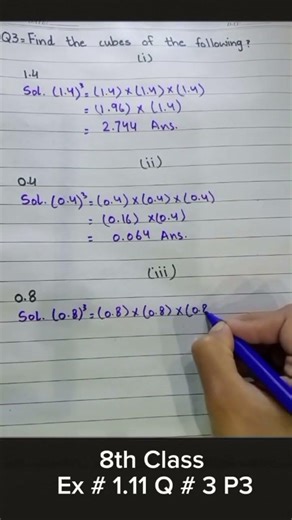 Q3= Find the cubes of the following?
(i)
1.4
Sol. (1.4)³= (1.4)×(1.4)×(1.4)
= (1.96) × (1.4)
= 2.744 Ans.
(ii)
0.4
Sol. (0.4)³= (0.4)×(0.4)×(0.4)
= (0.16) ×(0.4)
= 0.064 Ans.
(iii)
0.8
Sol. (0.8)³= (0.8)×(0.8)×(0.8
8th Class
Ex # 1.11 Q # 3 P3